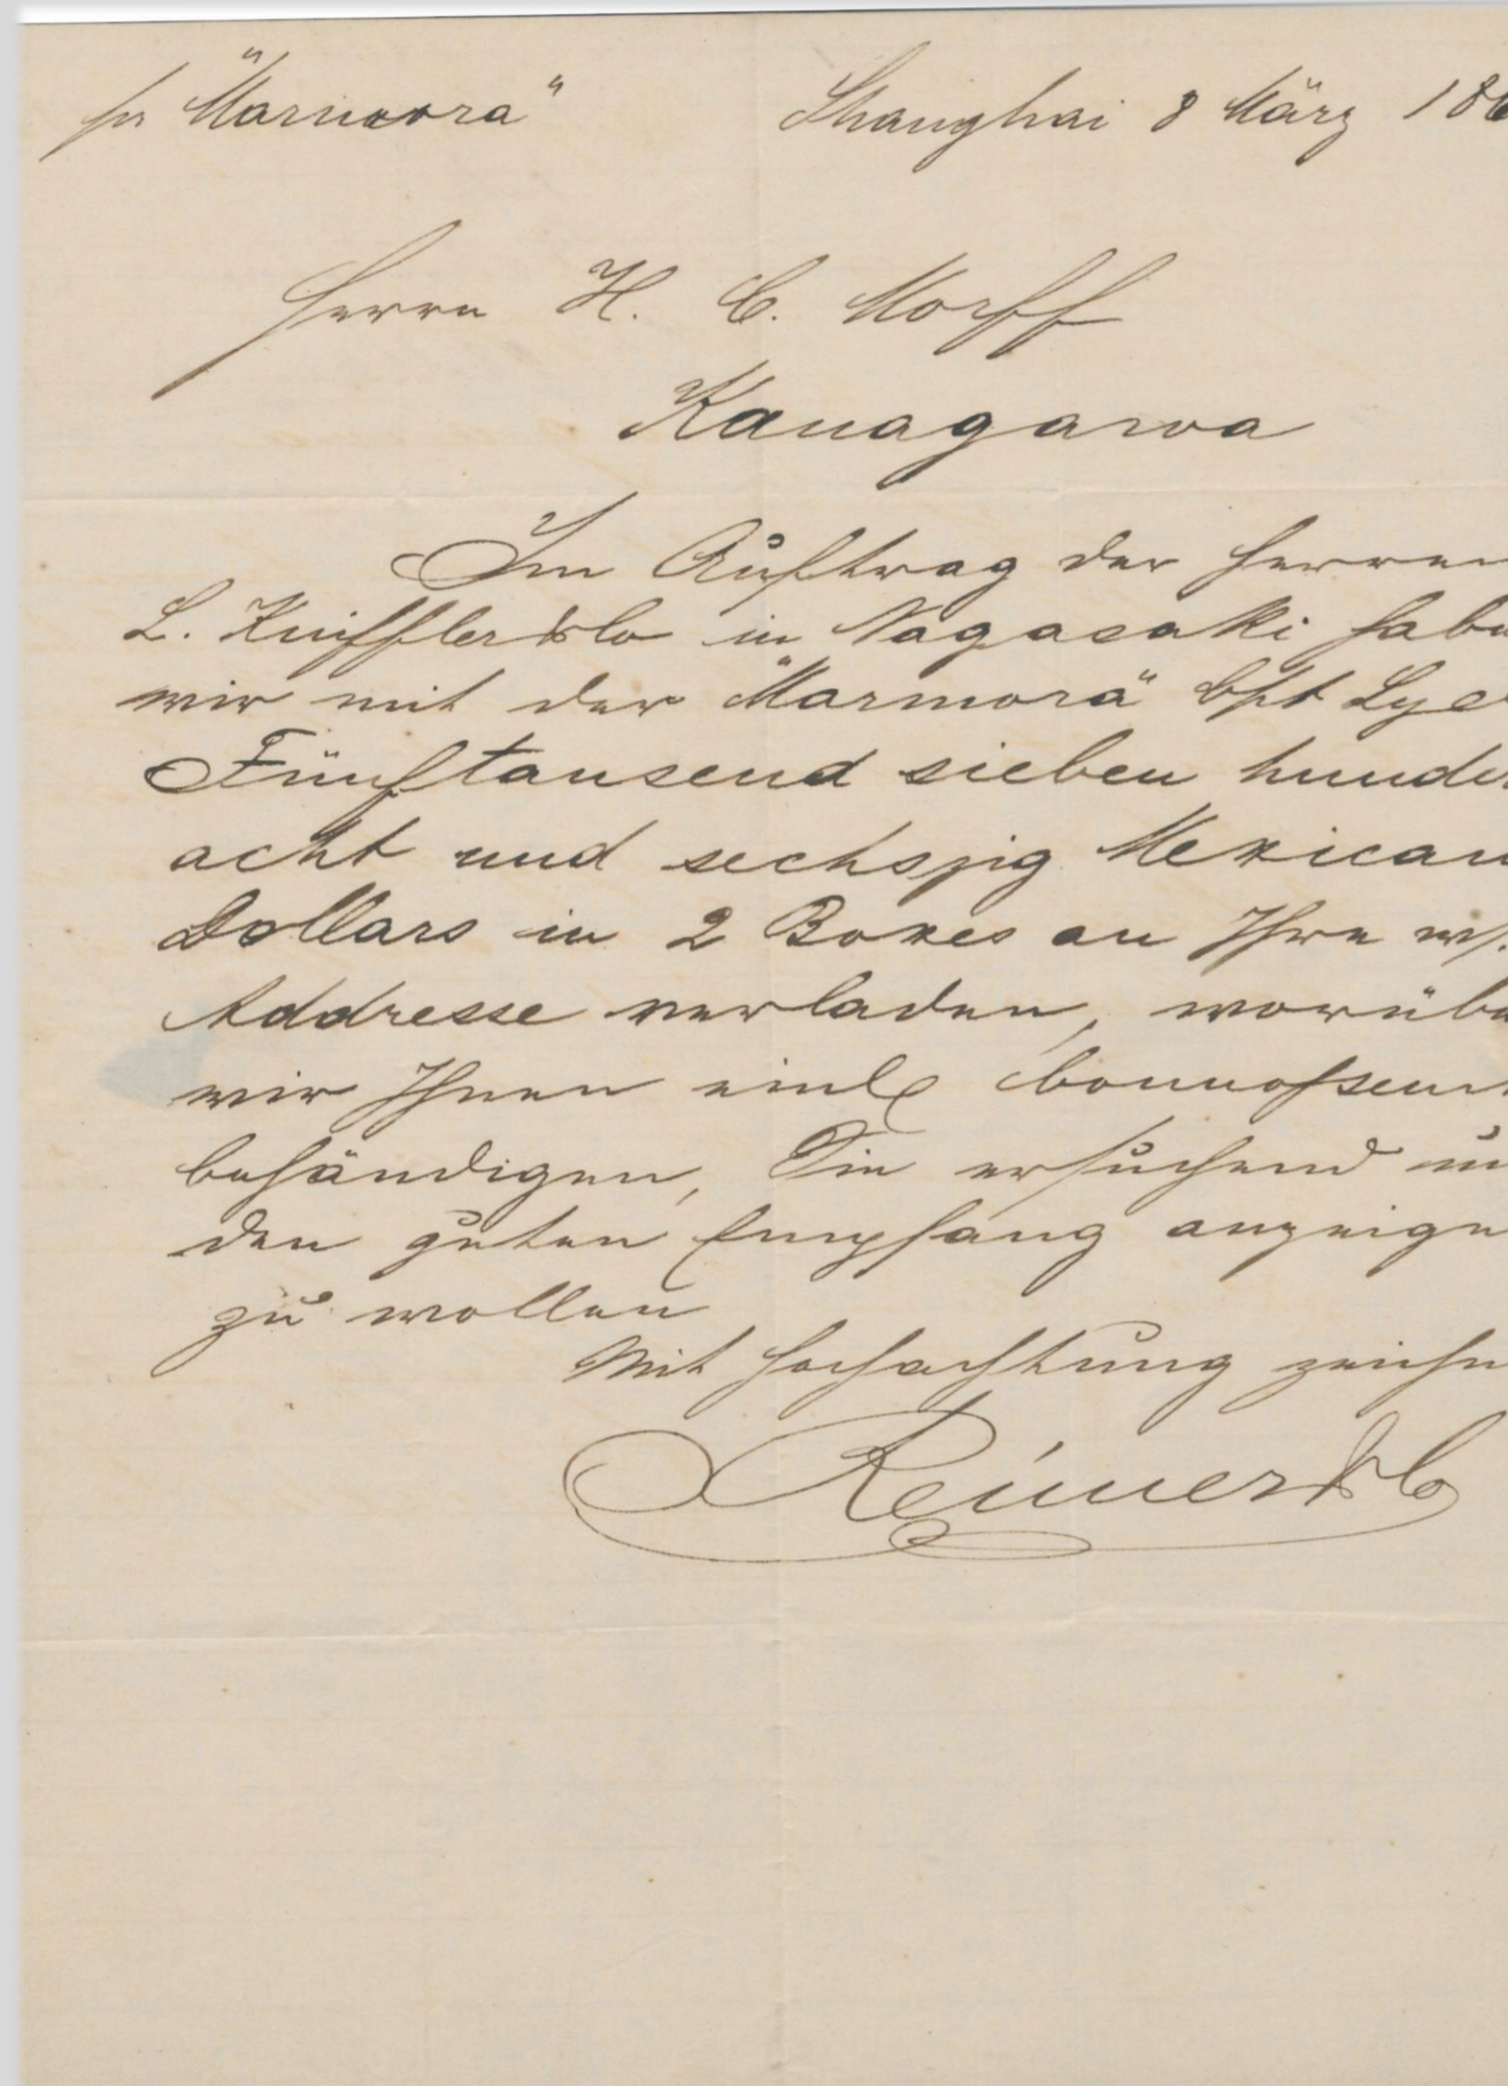 pr "Marmora" Shanghai 8 März 186
Herrn H. C. Morff
Kanagawa
Im Auftrag der Herren
L. Kniffler & Co in Nagasaki habe
wir mit der "Marmora" Cpt Lye
Fünftausend sieben hunder
acht und sechszig Mexican
Dollars in 2 Boxes an Ihre w/.
Addresse verladen, worübe
wir Ihnen einl. Connossem
behändigen, Sie ersuchend un
den guten Empfang anzeige
zu wollen
Mit Hochachtung zeichn
Reimer & Co